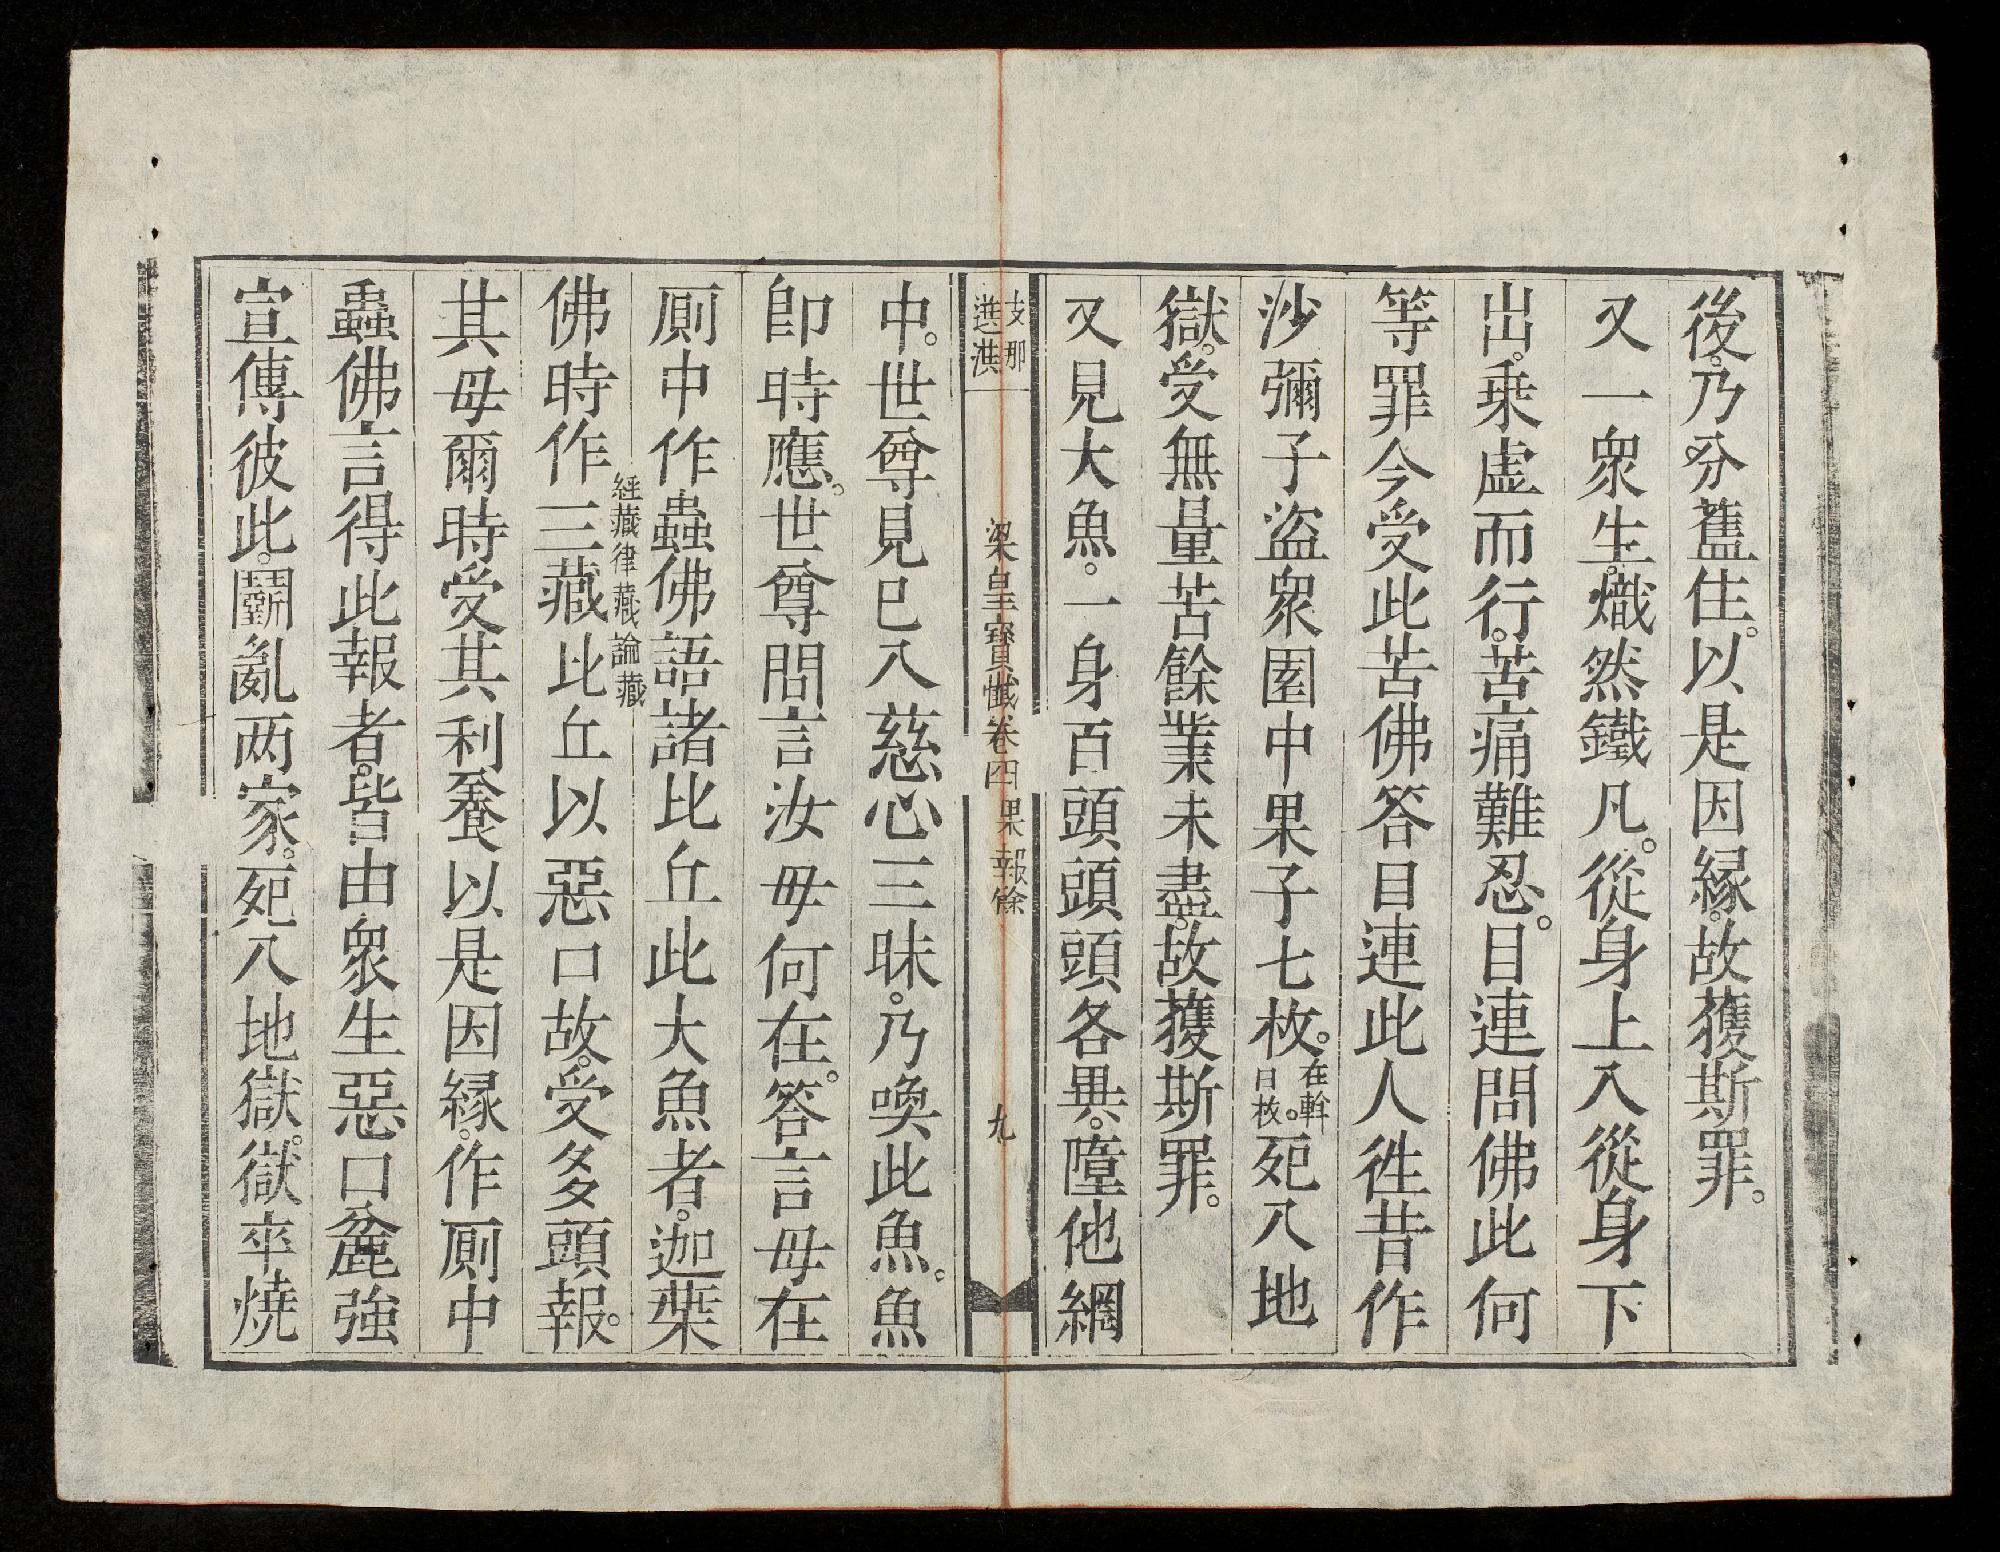 後。乃分舊住。以是因緣。故獲斯罪。
又一衆生。熾然鐵凡。從身上入從身下
出。乗虛而行。苦痛難忍。目連問佛此何
等罪今受此苦佛答目連此人徃昔作
沙彌子盜衆園中果子七枚。在幹曰枚。死入地
獄。受無量苦餘業未盡。故獲斯罪。
又見大魚。一身百頭頭頭各異。墮他網
支那
選洪
梁皇寶懺卷四 果報餘
九
中。世尊見已入慈心三昧。乃喚此魚。魚
即時應。世尊問言汝母何在。答言母在
厠中作蟲佛語諸比丘此大魚者。迦葉
佛時作三藏經藏律藏論藏比丘以惡口故。受多頭報。
其母爾時受其利養以是因緣。作厠中
蟲佛言得此報者。皆由衆生惡口麁強
宣傳彼此。鬭亂两家。死入地獄。獄卒燒